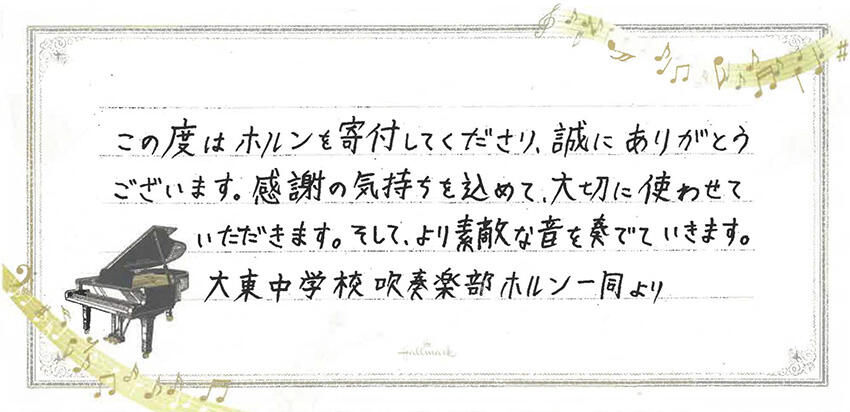 この度はホルンを寄付してくださり、誠にありがとう
ございます。感謝の気持ちを込めて、大切に使わせて
いただきます。そして、より素敵な音を奏でていきます。
大東中学校吹奏楽部ホルン一同より
Hallmark